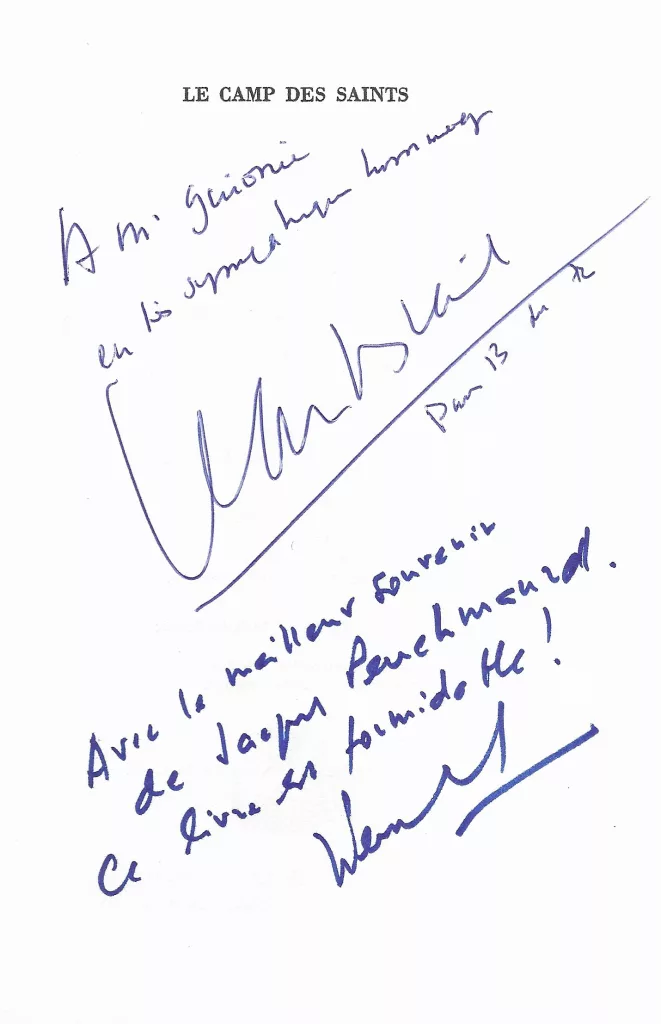 LE CAMP DES SAINTS
A M. Guionie
en très sympathique hommage
Avec le meilleur souvenir
de Jacques Peuchmaurd.
Ce livre est formidable !